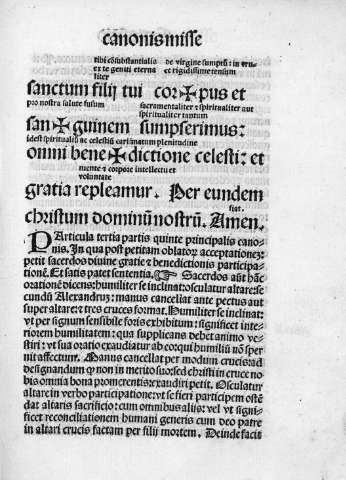 canonis misse
tibi cōsubstantialia de virgine sumptū: in cru
ex te geniti eterna et rigidissime tensum
liter
sanctum filij tui cor✠pus et
pro nostra salute fusum sacramentaliter et spiritualiter aut
spiritualiter tantum
san✠guinem sumpserimus:
idest spirituali ac celesti plenitudine
omni bene✠dictione celesti: et
mente et corpore intellectu et
voluntate
gratia repleamur. Per eundem
fiat.
christum dominū nostrū. Amen.
PArticula tertia partis quinte principalis cano-
nis. In qua post petitam oblatorum acceptationez:
petit sacerdos diuine gratie et benedictionis participa-
tionē. Et satis patet sententia. ☞ Sacerdos aūt hāc
orationē dicens: humiliter se inclinat: osculatur altare: se
cundū Alexandrum: manus cancellat ante pectus aut
super altare: et tres cruces format. Humiliter se inclinat:
vt per signum sensibile foris exhibitum: significet inte-
riorem humilitatem: qua supplicans debet animo ve-
stiri: vt sua oratio exaudiatur ab eo qui humiliū nō sper
nit affectum. Manus cancellat per modum crucis: ad
designandum qp non in merito suo: sed christi in cruce no
bis omnia bona promerentis: exaudiri petit. Osculatur
altare in verbo participatione: vt se fieri participem osten
dat altaris sacrificio: cum omnibus alijs: vel vt signi-
ficet reconciliationem humani generis cum deo patre
in altari crucis factam per filij mortem. Deinde facit